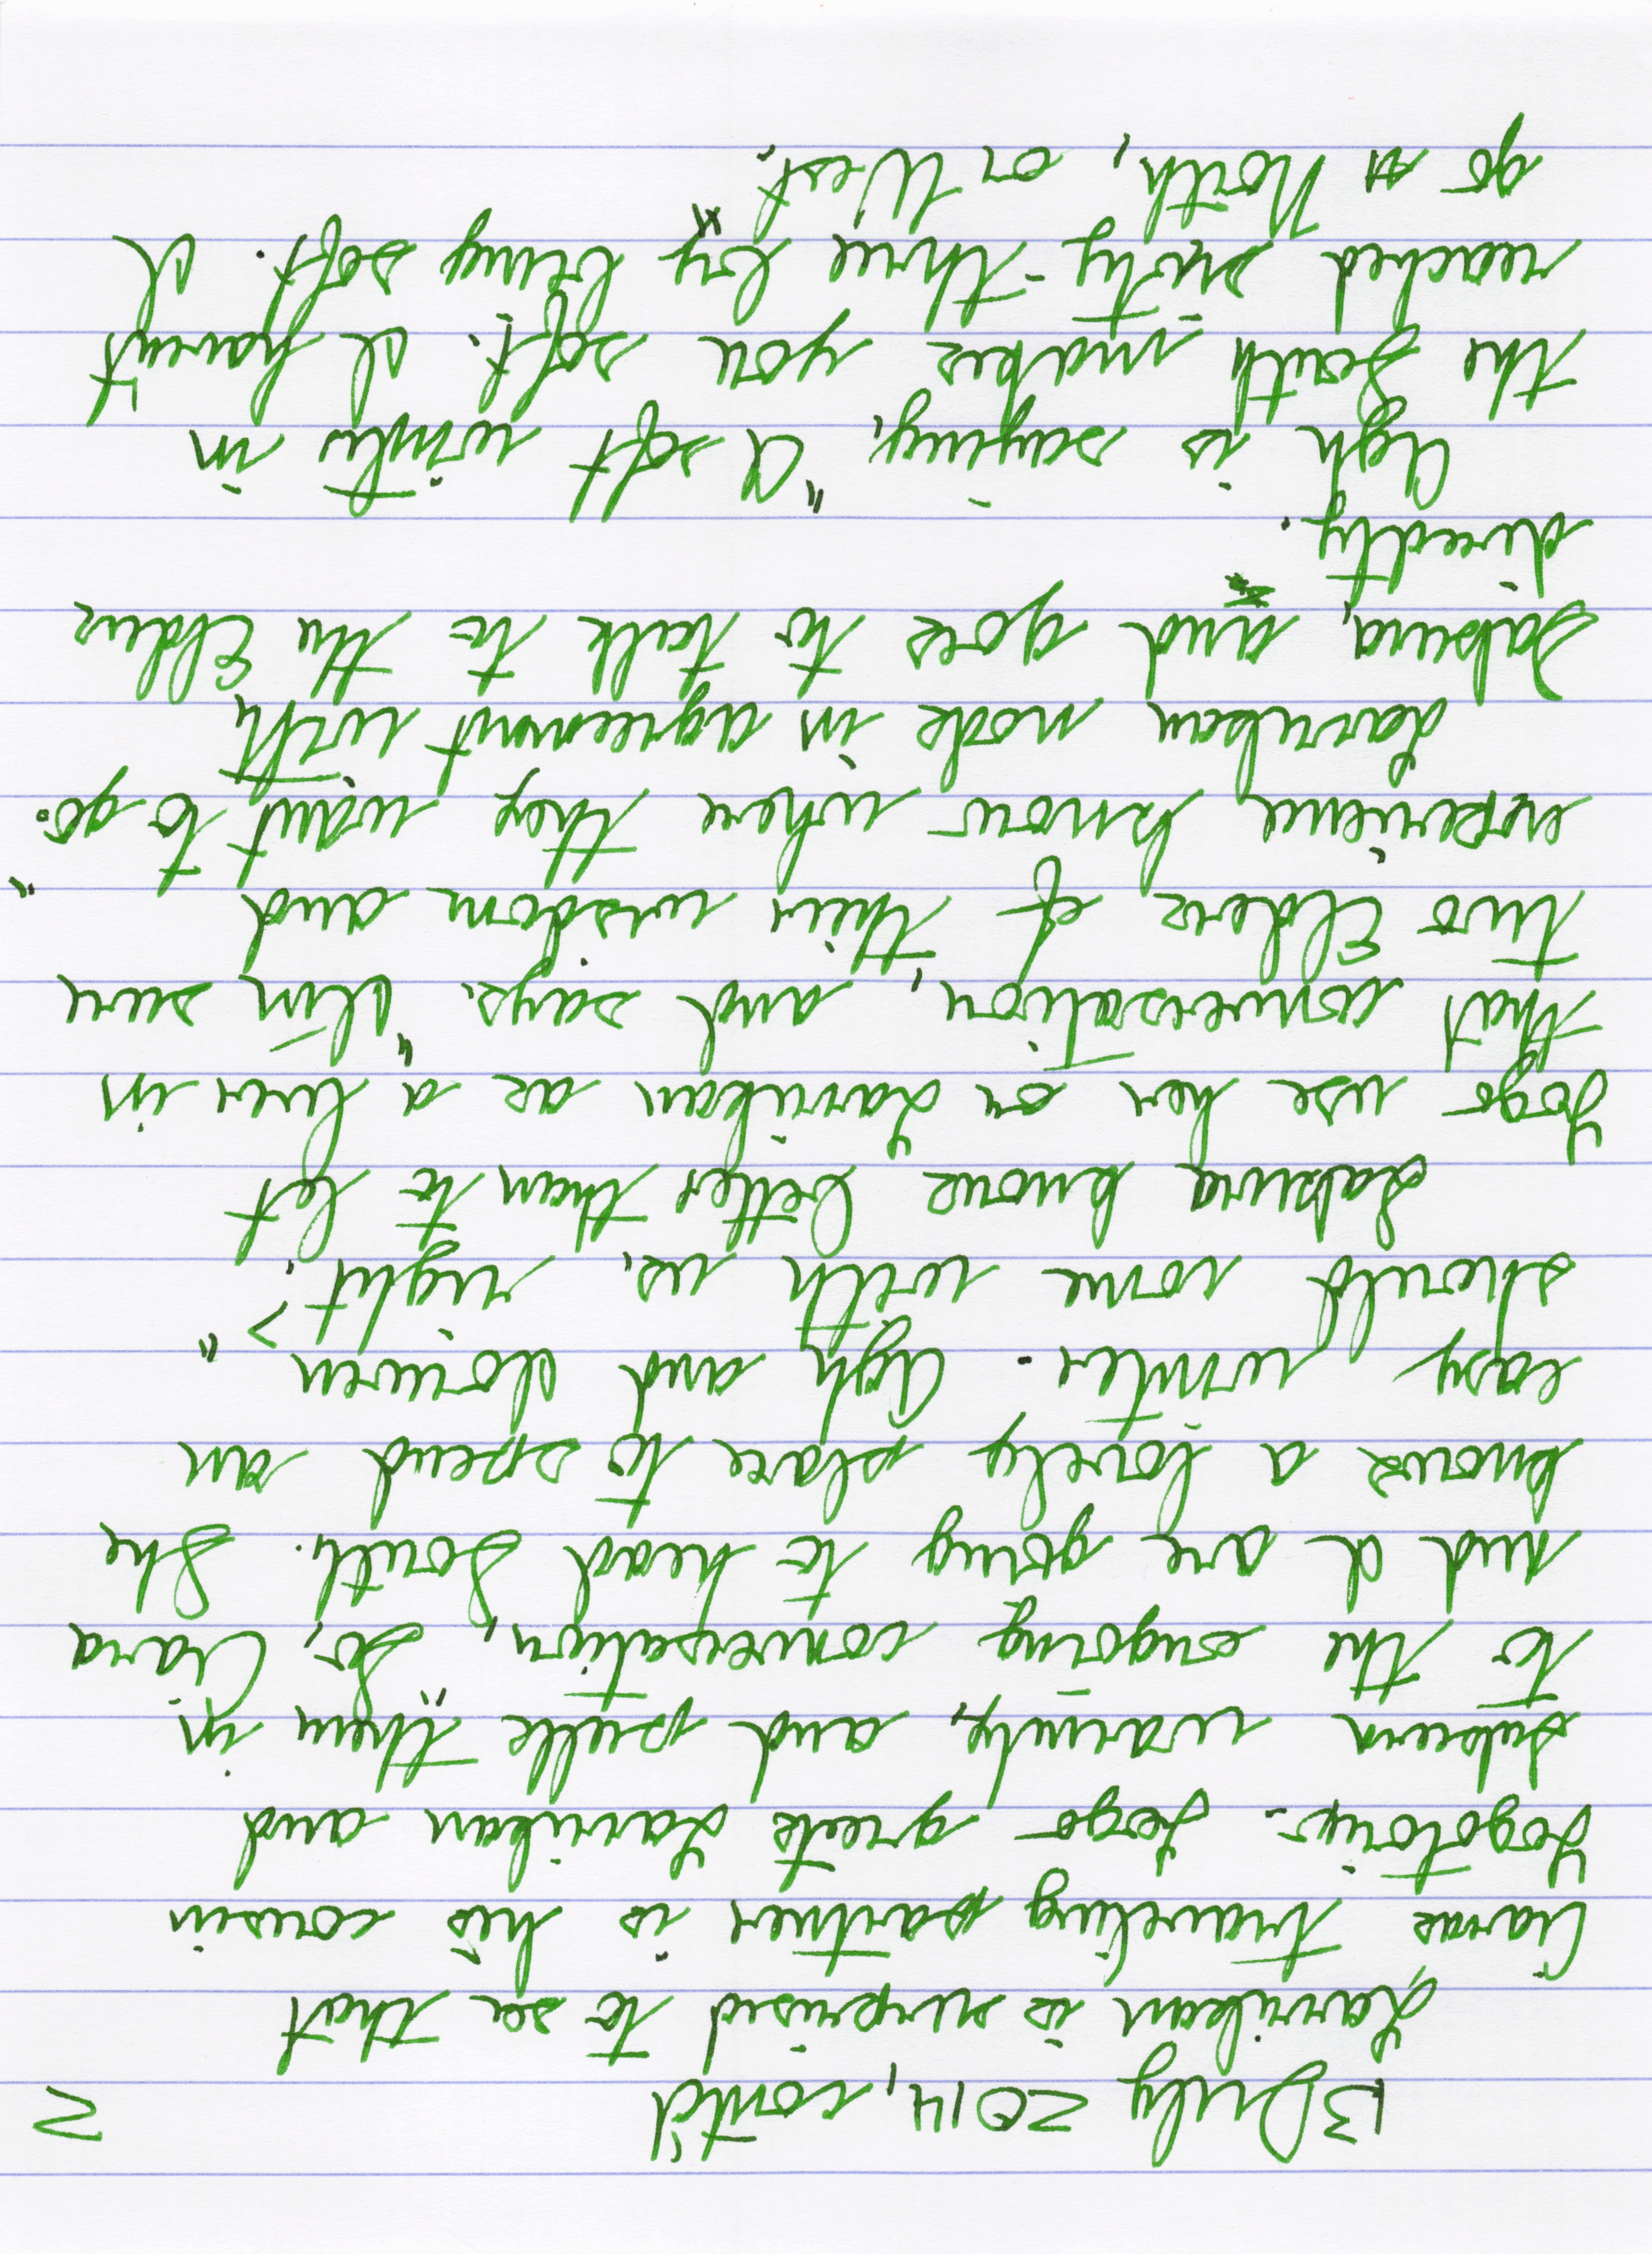 13 July 2014, cont'd 2
Larrikan is surprised to see that
Ciaras traveling partner is his cousin
Yogotsuyo. Yogo greets Larrikan and
Sabura warmly, and pulls them in
to the ongoing conversation, "So, Ciara
and I are going to head South. She
knows a lovely place to spend an
easy winter. Agh and Dorwen
should come with us, right?"
Sabura knows better than to let
Yogo use her or Larrikan as a lever in
that conversation, and says, "I'm sure
two Elders of their wisdom and
experience know where they want to go."
Larrikan nods in agreement with
Sabura, and goes to talk to the Elders
directly.
Agh is saying, "A soft winter in
the South makes you soft. I haven't
reached sixty-three by being soft. I
go North, or West."